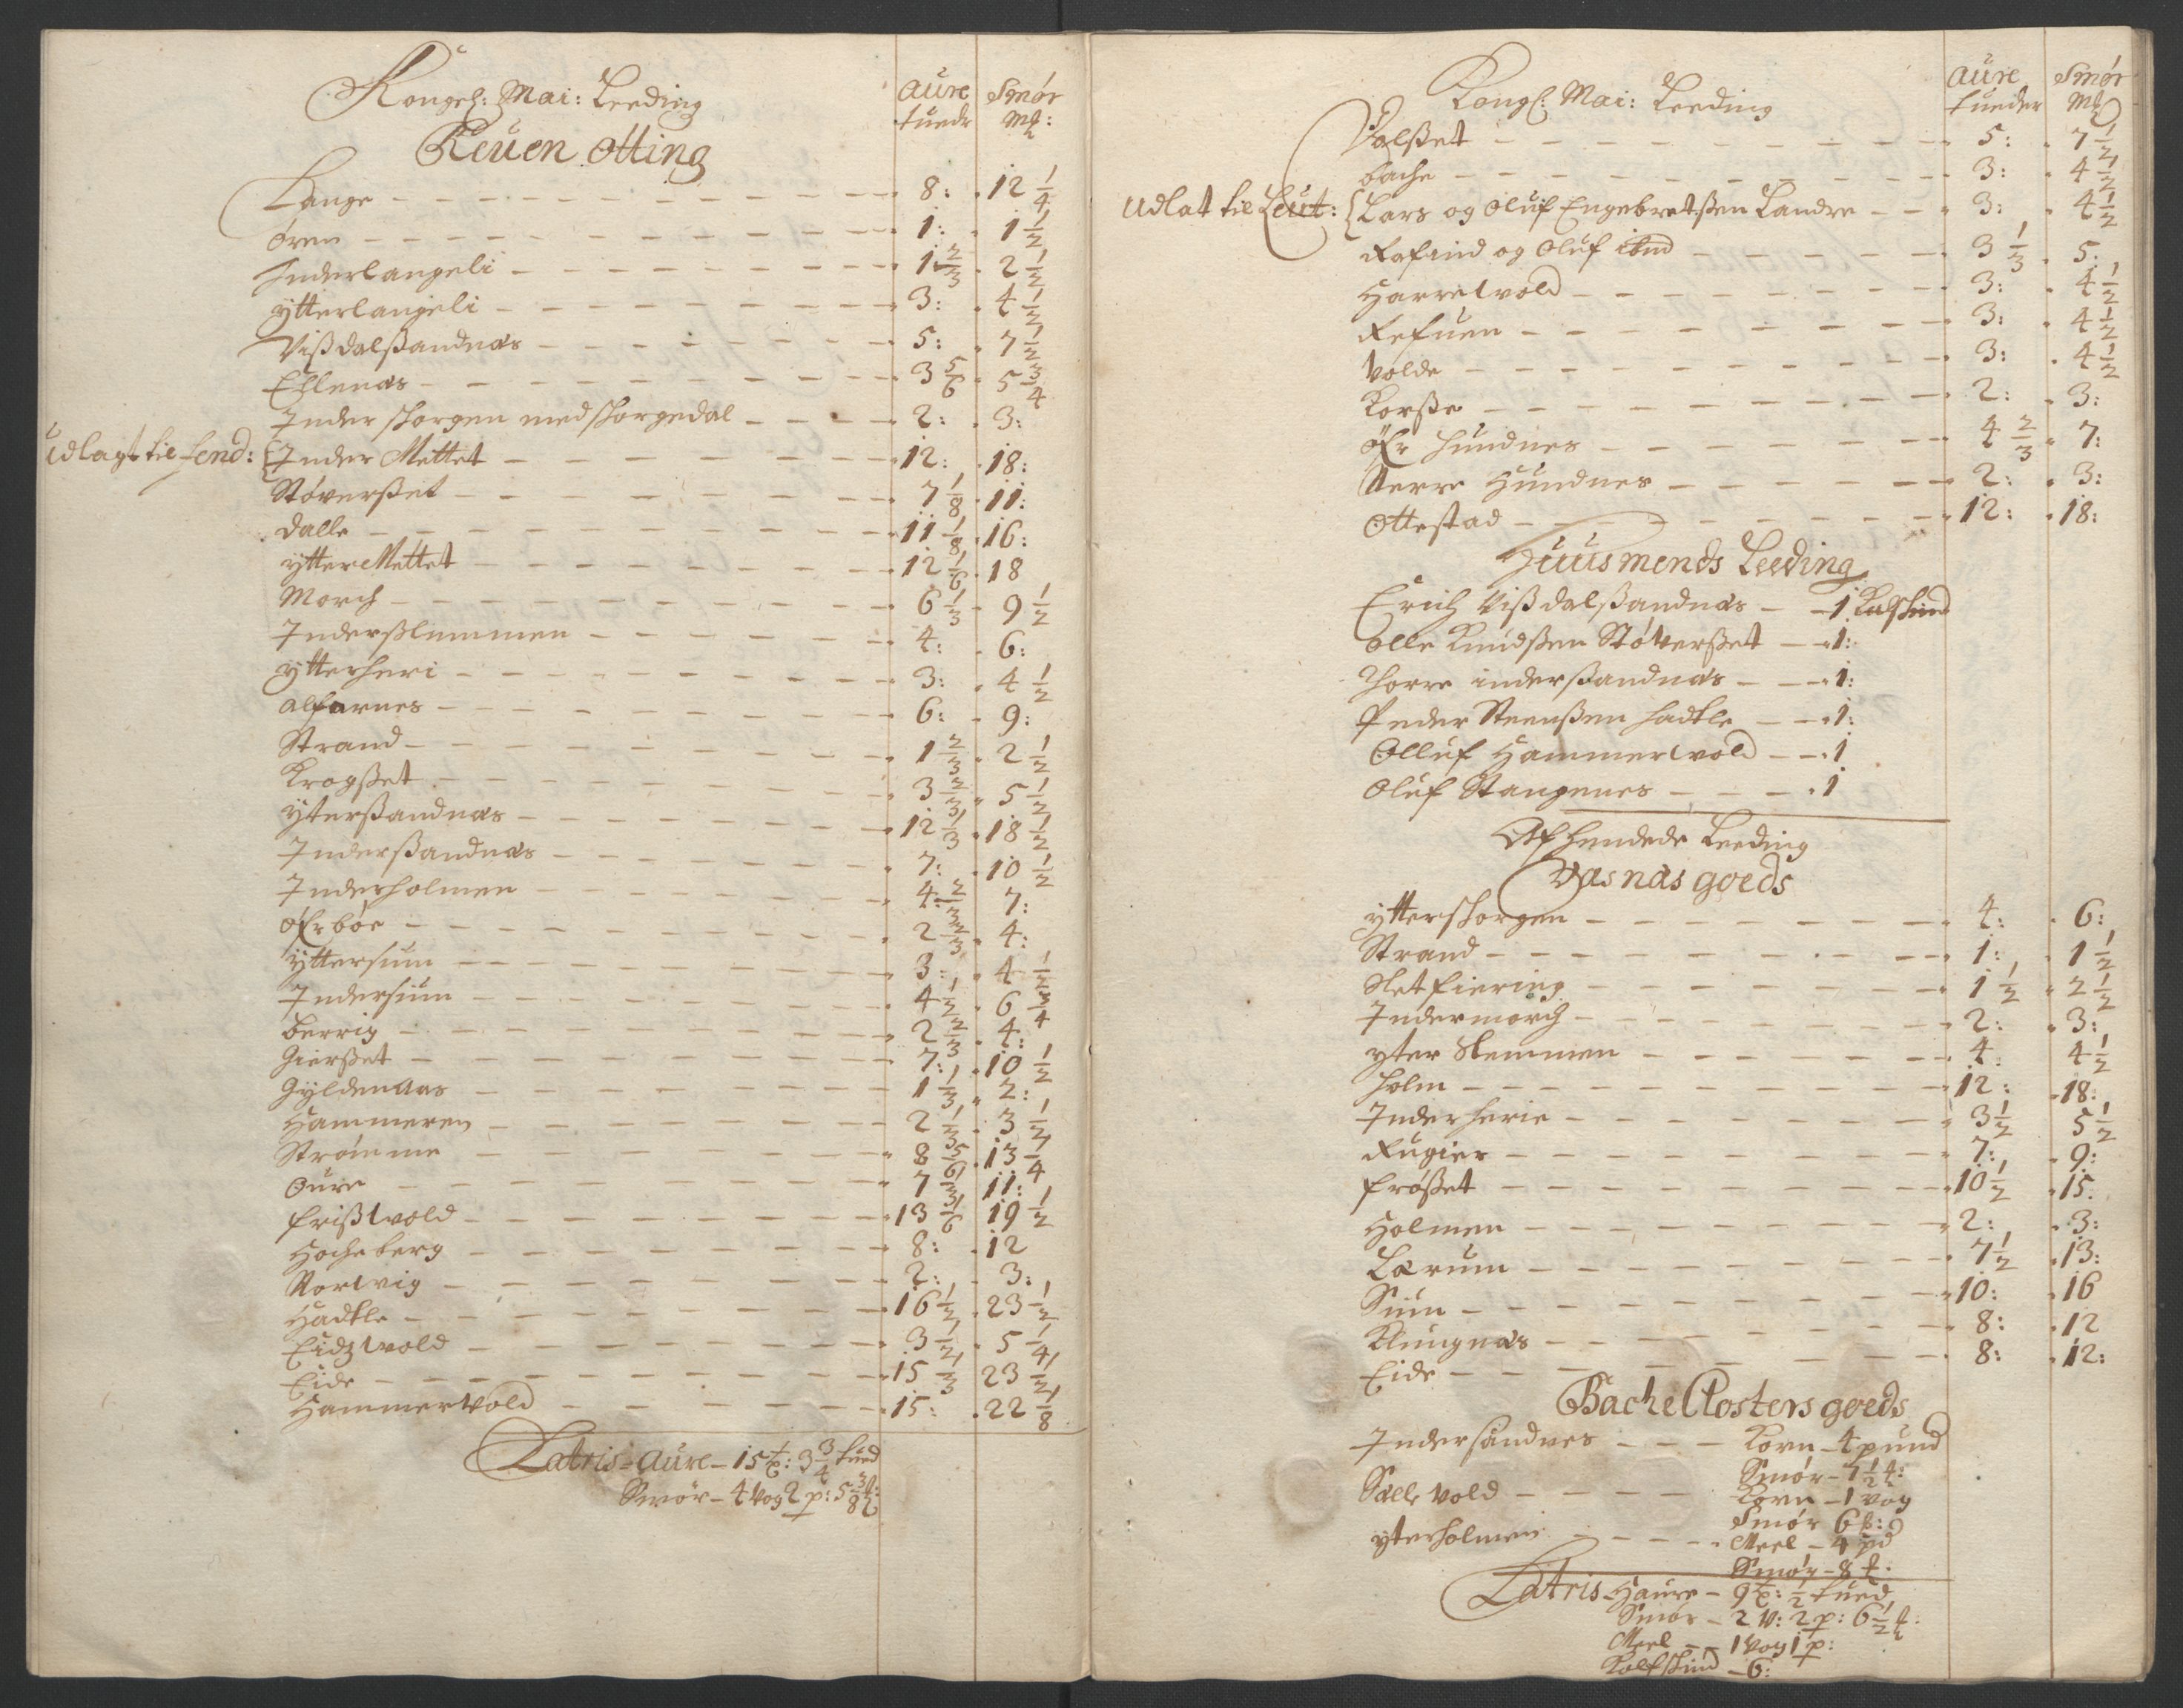 Kongel: Mai: Leeding
Aure Smör
tuedr Mk:
Reuen Otting
Lange 8: 12 1/4
ören 1: 1 1/2
Inderlangeli 1 2/3 2 1/2
ytterlangeli 3: 4 1/2
Vißdalßandnæs 5: 7 1/2
Ellenæs 3 5/6 5 3/4
Inder skorgen med skorgedal 2: 3:
Udlagt til Lend: Inder Mettet 12: 18:
Stöverßet 7 1/8 11:
Dalle 11 1/8 16:
ytter Mettet 12 1/6 18
Morch 6 1/3 9 1/2
Inderßlemmen 4: 6:
ytterheri 3: 4 1/2
Alfarnes 6: 9:
Strand 1 2/3 2 1/2
Krogßet 3 2/3 5 1/2
Yterßandnæs 12 1/3 18 1/2
Inderßandnæs 7: 10 1/2
Inderholmen 4 2/3 7:
öfrböe 2 2/3 4:
Yttersum 3: 4 1/2
Indersum 4 1/2 6 3/4
Berrig 2 2/3 4:
Gierßet 7: 10 1/2
Gyldenaas 1 1/3 2:
Hammeren 2 1/3 3 1/2
Strömme 8 5/6 13 1/4
Oure 7 1/3 11:
Frißvold 13 1/6 19 1/2
Hocheberg 8: 12
Nortvig 2: 3:
Hadtle 16 1/2 23 1/2
Eidzvold 3 1/2 5 1/4
Eide 15 1/3 23 1/2
Hammervold 15: 22 1/8
Latris Aure 15 3 3/4 tued
Smör 4 Vog 2 p: 5 3/8
Kongl: Mai: Leeding
Aure Smör
tueder Mk
Dalßet 5: 7 1/2
Bache 3: 4 1/2
Udlat til Leut: Lars og Oluf Engebretßen Landre 3: 4 1/2
Rafind og Oluf ibnd 3 1/3 5:
Harrelvold 3: 4 1/2
Refuen 3: 4 1/2
Volde 3: 4 1/2
Korße 2: 3:
öfr Hundnes 4 2/3 7:
Nerre Hundnes 2: 3:
Ottestad 12: 18:
Huusmends Leeding
Erich Vißdalßandnæs 1 Kalfskind
Olle Knudßen Stöverßet 1:
Thorre inderßandnæs 1:
Peder Steenßen Hadtle 1:
Olluf Hammervold 1
Oluf Stangenes 1
Afhendede Leeding
Vasnæs goeds
ytterskorgen 4: 6:
Strand 1: 1 1/2
Sletfiering 1 1/2 2 1/2
Indermorch 2: 3:
yter Slemmen 4: 4 1/2
Holm 12: 18:
Inderherie 3 1/2 5 1/2
Rugier 7: 9:
Fröset 10 1/2 15.
Holmen 2: 3:
Lærum 7 1/2 13:
Suin 10: 16
Klungnæs 8: 12
Eide 8: 12:
Bache Closters goeds
Indersandnes Korn 4 pund
Smör 7 1/2
Sælle vold Korn 1 Vog
Smör 6
yterholmen Meel 4 pd
Smör 8
Latris Haure 9 1/2 tued
Smör 2 V: 2 p: 6 1/2
Meel 1 Vog 1 p:
Kalfskind 6: